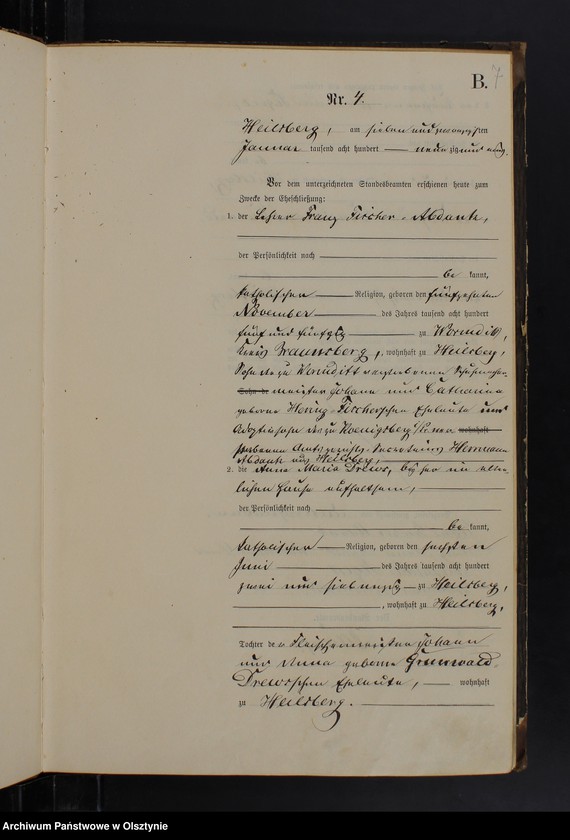 B. 7
Nr. 4.
Heilsberg, am sieben und zwanzigsten
Januar tausend acht hundert neun zig und
Vor dem unterzeichneten Standesbeamten erschienen heute zum
Zwecke der Eheschließung:
1. der Lehrer Franz Fischer-Abdank,
der Persönlichkeit nach
be kannt,
katholischer Religion, geboren den fünfzehnten
November des Jahres tausend acht hundert
fünf und fünfzig zu Wormditt,
Kreis Braunsberg, wohnhaft zu Heilsberg,
Sohn der zu Wormditt verstorbenen Schuhmacher-
Sohn de meister Johann und Catharina
geborne Hennig-Fischerschen Eheleute und
Adoptivsohn des zu Koenigsberg wohnhaft
Amtsgerichts-Secretairs Hermann
Abdank aus Heilsberg,
2. die Anna Maria Drews, bisher im elter-
lichen Hause aufhaltsam,
der Persönlichkeit nach
be kannt,
katholischer Religion, geboren den sechsten
Juni des Jahres tausend acht hundert
zwei und siebenzig zu Heilsberg,
, wohnhaft zu Heilsberg,
Tochter der Fleischermeister Johann
und Anna geborne Grunwald-
Drewsschen Eheleute, wohnhaft
zu Heilsberg.
Archiwum Państwowe w Olsztynie